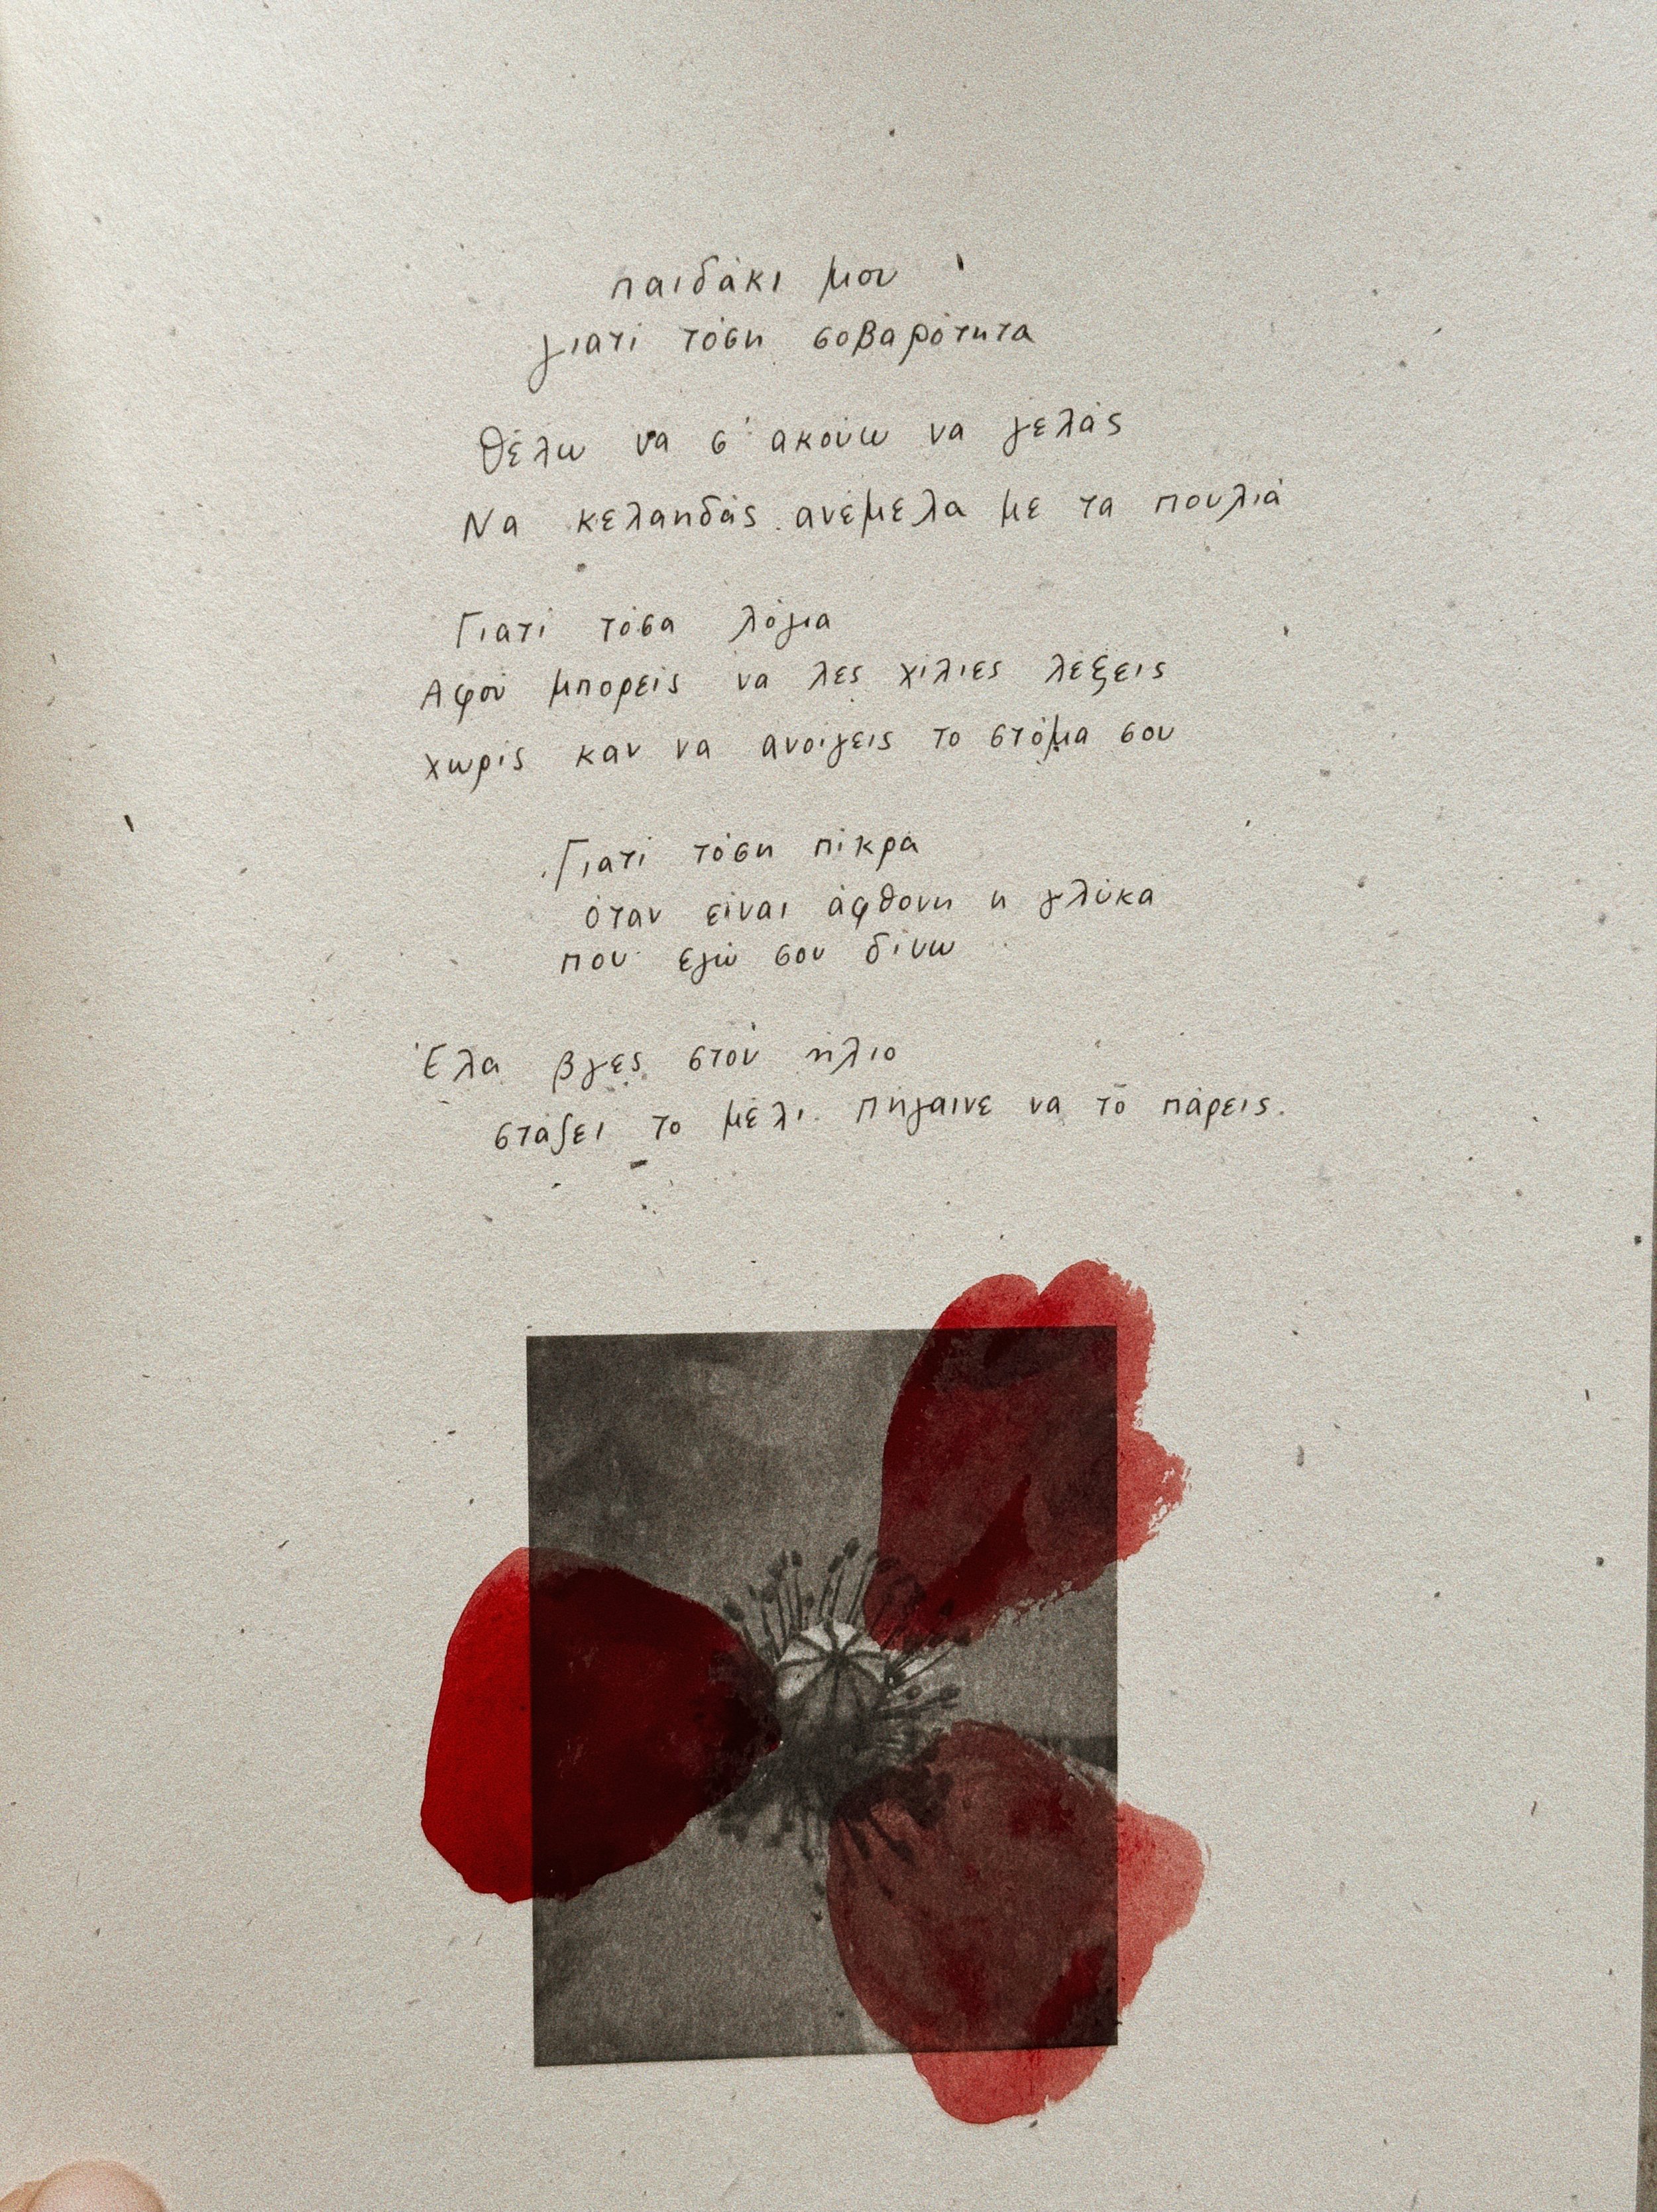 παιδάκι μου
γιατί τόση σοβαρότητα
Θέλω να σ' ακούω να γελάς
Να κελαηδάς ανέμελα με τα πουλιά
Γιατί τόσα λόγια
Αφού μπορείς να λες χίλιες λέξεις
χωρίς καν να ανοίγεις το στόμα σου
Γιατί τόση πίκρα
όταν είναι άφθονη η γλύκα
που εγώ σου δίνω
Έλα βγες στον ήλιο
στάζει το μέλι. Πήγαινε να το πάρεις.